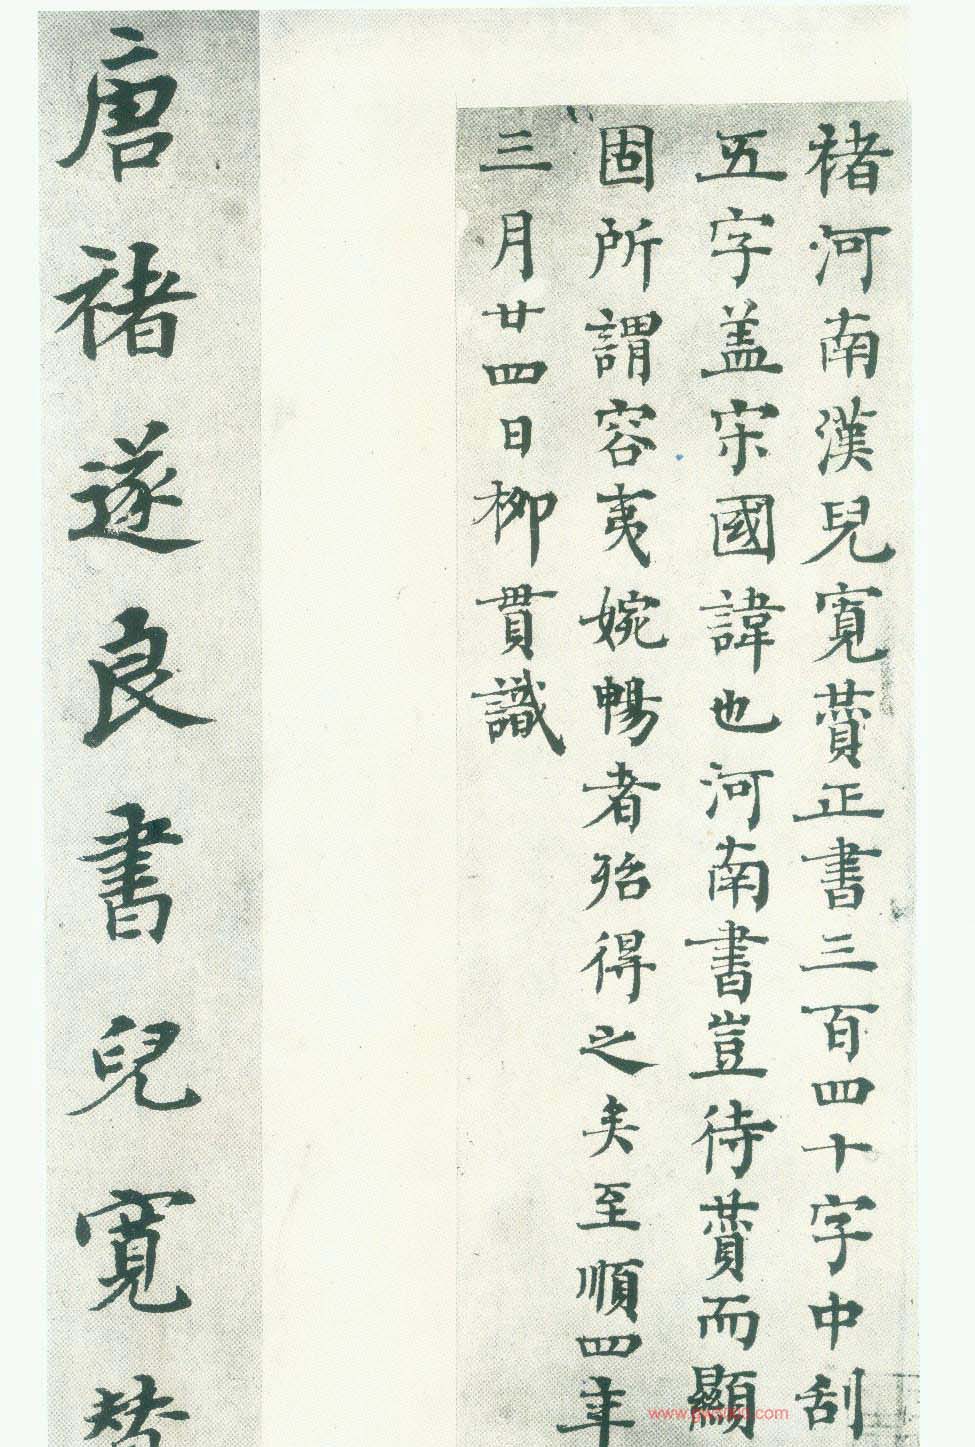 褚河南漢兒寬贊正書三百四十字中刮
五字盖宋國諱也河南書豈待贊而顯
固所謂容夷婉暢者殆得之矣至順四年
三月廿四日柳貫識
唐褚遂良書兒寬贊
www.gwsmm.com